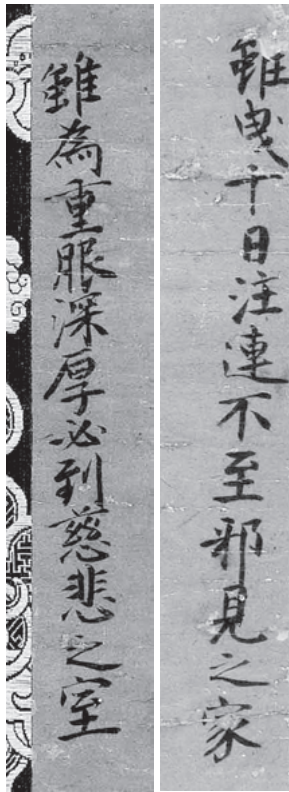 雖曵十日注連不至邪見之家
雖為重服深厚必到慈悲之室